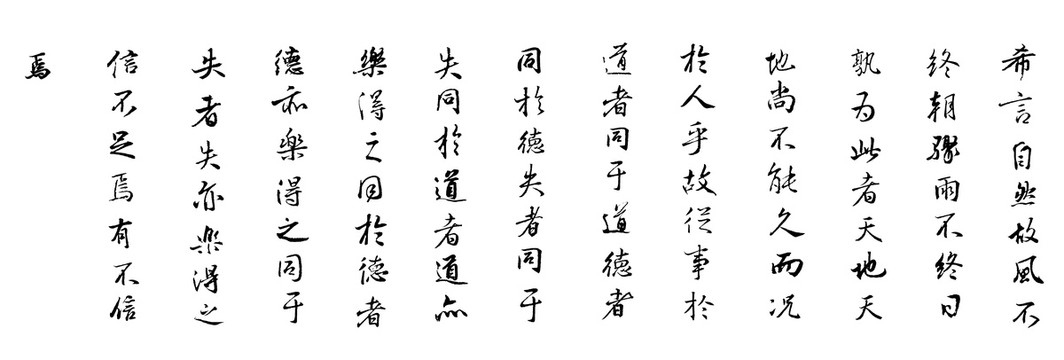 希言自然故風不
終朝驟雨不終日
孰为此者天地天
地尚不能久而况
於人乎故從事於
道者同于道德者
同於德失者同于
失同於道者道亦
樂得之同於德者
德亦楽得之同于
失者失亦楽得之
信不足焉有不信
焉